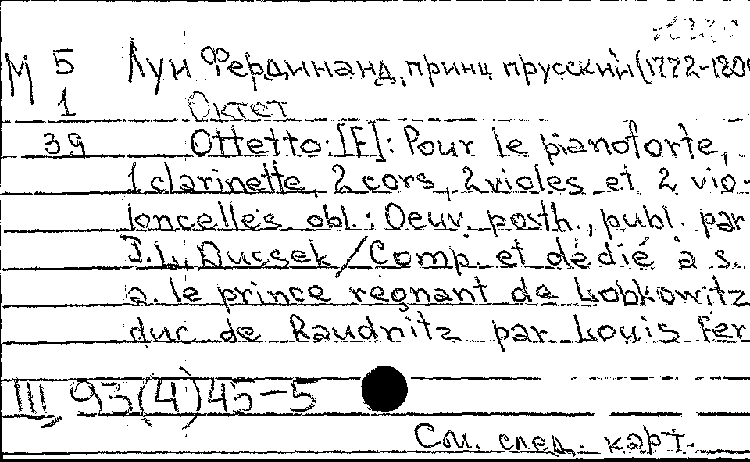 М 5 Луи Фердинанд, принц прусский (1772-180
1 Октет
39 Ottetto: [F]: Pour le pianoforte,
1 clarinette, 2 cors, 2 violes et 2 vio-
loncelles obl.: Oeuv. posth., publ. par
J. L. Dussek / Comp. et dédié à s.
a. le prince regnant de Lobkowitz
duc de Raudnitz par Louis Fer
III 93(4)45-5
См. след. карт.